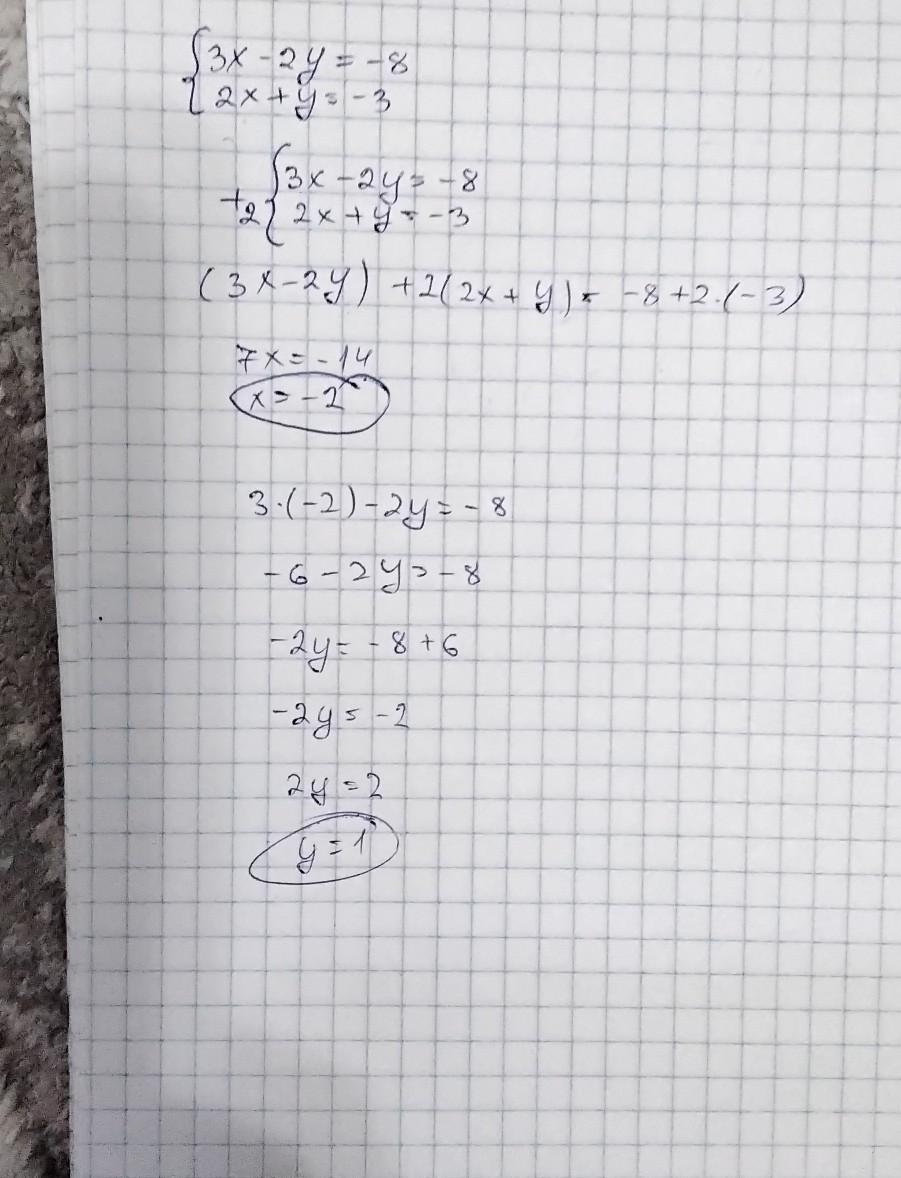 {3x - 2y = -8
2x + y = -3
{3x - 2y = -8
+2 2x + y = -3
(3x - 2y) + 2(2x + y) = -8 + 2·(-3)
7x = -14
x = -2
3·(-2) - 2y = -8
-6 - 2y = -8
-2y = -8 + 6
-2y = -2
2y = 2
y = 1